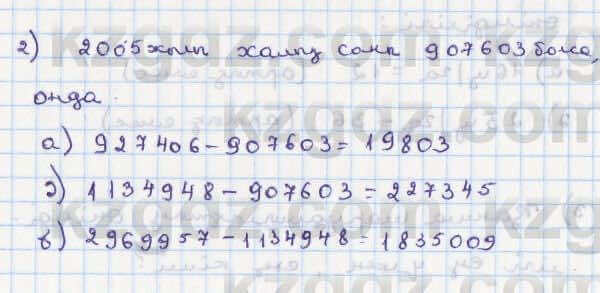 2) 2005 жыл халық саны 907603 болса,
онда
а) 927406 - 907603 = 19803
ә) 1134948 - 907603 = 227345
б) 2969957 - 1134948 = 1835009